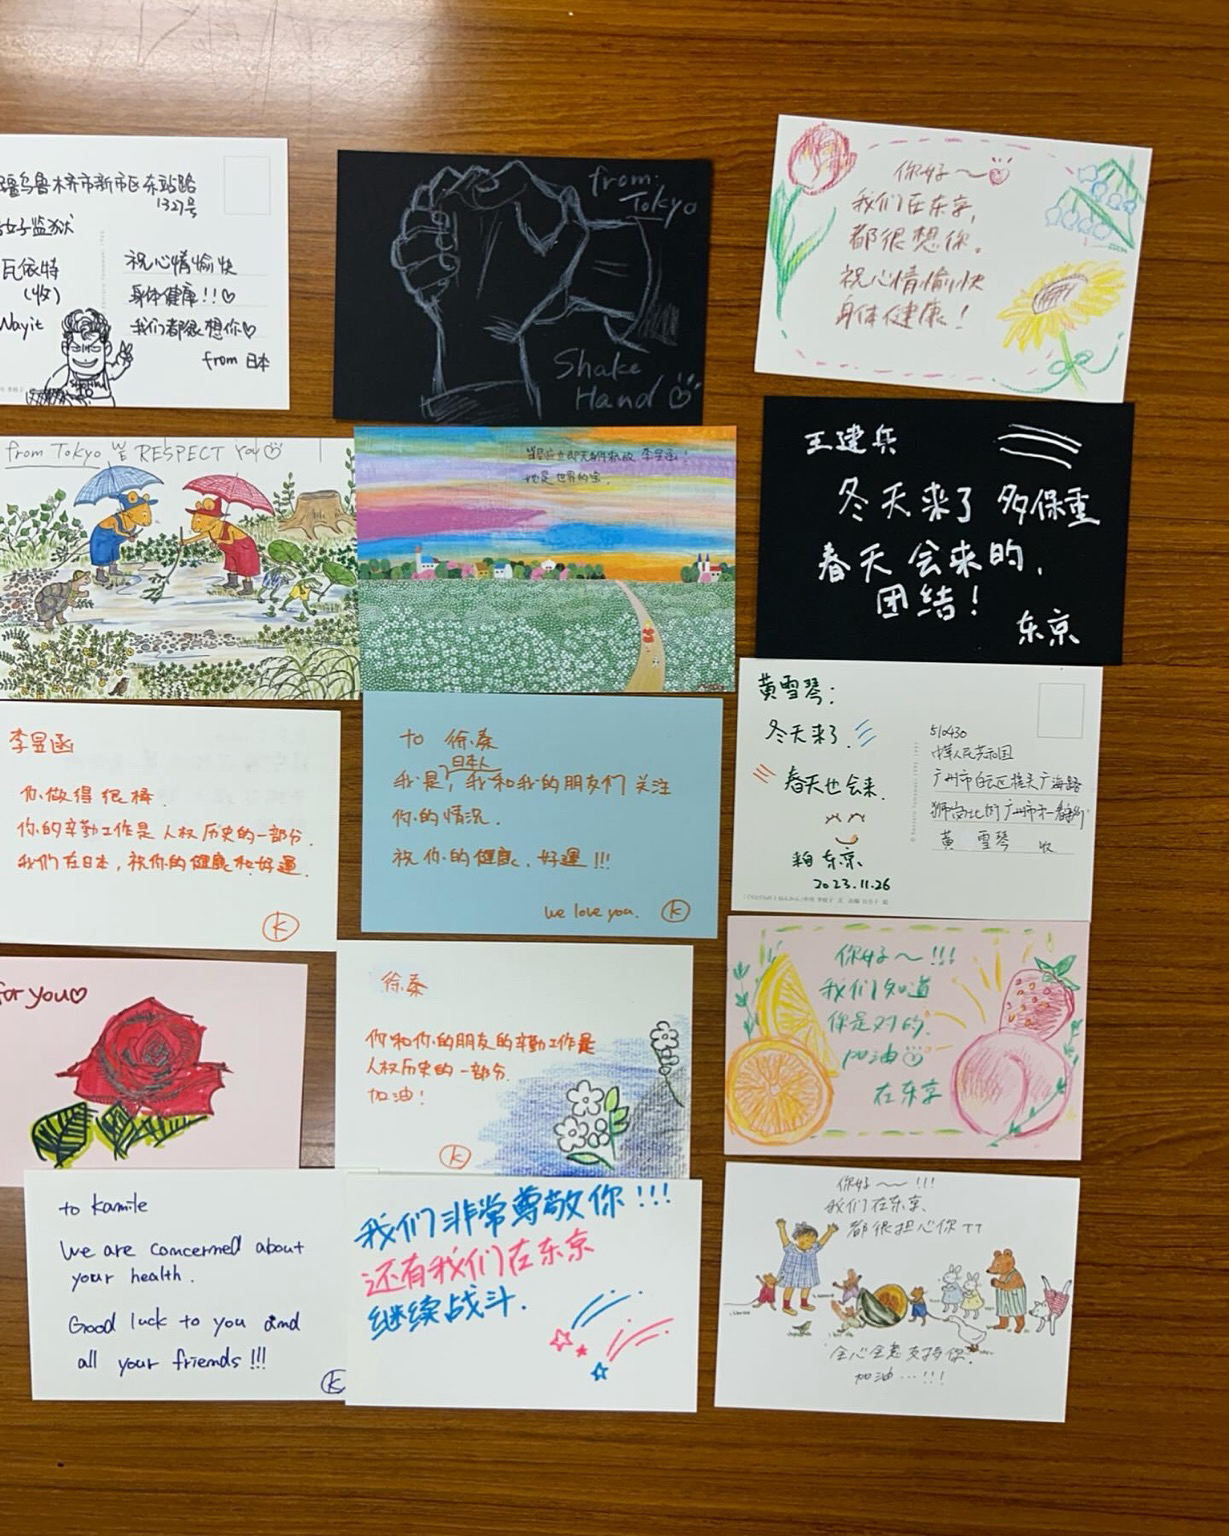 乌鲁木齐市新市区东站路
1327号
女子监狱
瓦依特
(收)
Nayit
祝心情愉快
身体健康!!♡
我们都很想你♡
from 日本
from:
Tokyo
Shake
Hand ♡
你好～♡
我们在东京,
都很想你。
祝心情愉快
身体健康!
from Tokyo WE RESPECT YOU
李昱函!
她是世界的宝.
王建兵
冬天来了 多保重
春天会来的,
团结!
东京
李昱函
你做得很棒.
你的辛勤工作是人权历史的一部分.
我们在日本,祝你的健康和好運.
K
to 徐秦
日本人
我是,我和我的朋友们关注
你的情况.
祝你的健康、好運!!!
we love you. K
黄雪琴:
冬天来了.
春天也会来.
来自 东京
2023.11.26
510430
中华人民共和国
广州市白云区
黄雪琴 收
for you♡
徐秦
你和你的朋友的辛勤工作是
人权历史的一部分.
加油!
K
你好～!!!
我们知道
你是对的.
加油
在东京
to kamile
We are concerned about
your health.
Good luck to you and
all your friends!!!
K
我们非常尊敬你!!!
还有我们在东京
继续战斗.
你好～～!!!
我们在东京、
都很担心你TT
全心全意支持你.
加油…!!!